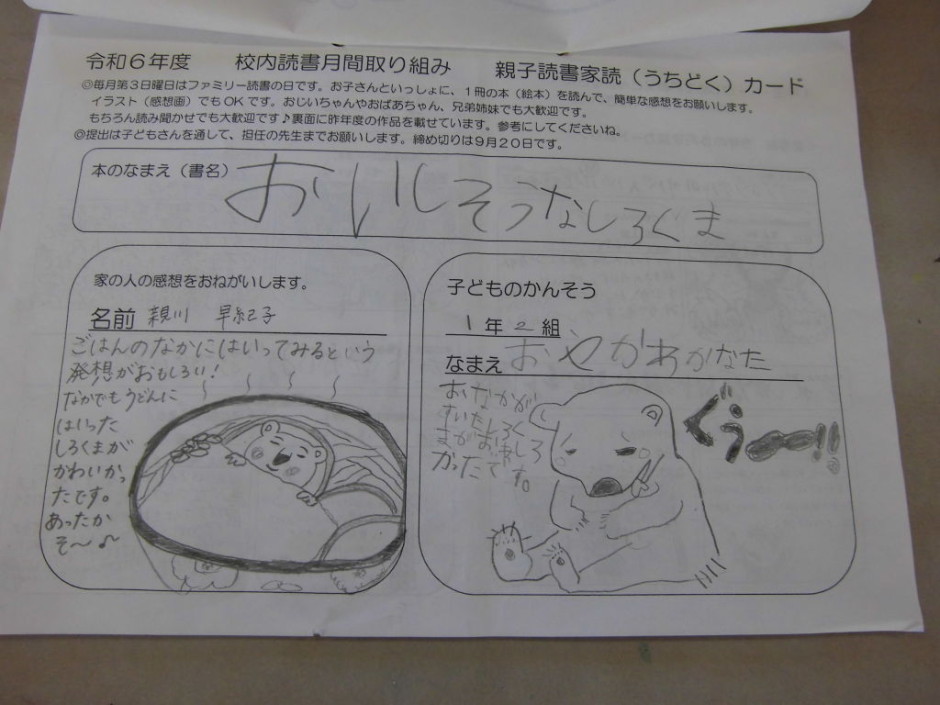 令和6年度　校内読書月間取り組み　親子読書家読（うちどく）カード
◎毎月第3日曜日はファミリー読書の日です。お子さんといっしょに、1冊の本（絵本）を読んで、簡単な感想をお願いします。
イラスト（感想画）でもOKです。おじいちゃんやおばあちゃん、兄弟姉妹でも大歓迎です。
もちろん読み聞かせでも大歓迎です♪裏面に昨年度の作品を載せています。参考にしてくださいね。
◎提出は子どもさんを通して、担任の先生までお願いします。締め切りは9月20日です。
本のなまえ（書名）
おいしそうなしろくま
家の人の感想をおねがいします。
名前 親川 早紀子
ごはんのなかにはいってみるという
発想がおもしろい！
なかでもうどんに
はいった
しろくまが
かわいかっ
たです。
あったか
そ〜♪
子どものかんそう
1年2組
なまえ おやかわかなた
おなかが
すいたしろく
まがおもしろ
かったです。
ぐぅーー!!